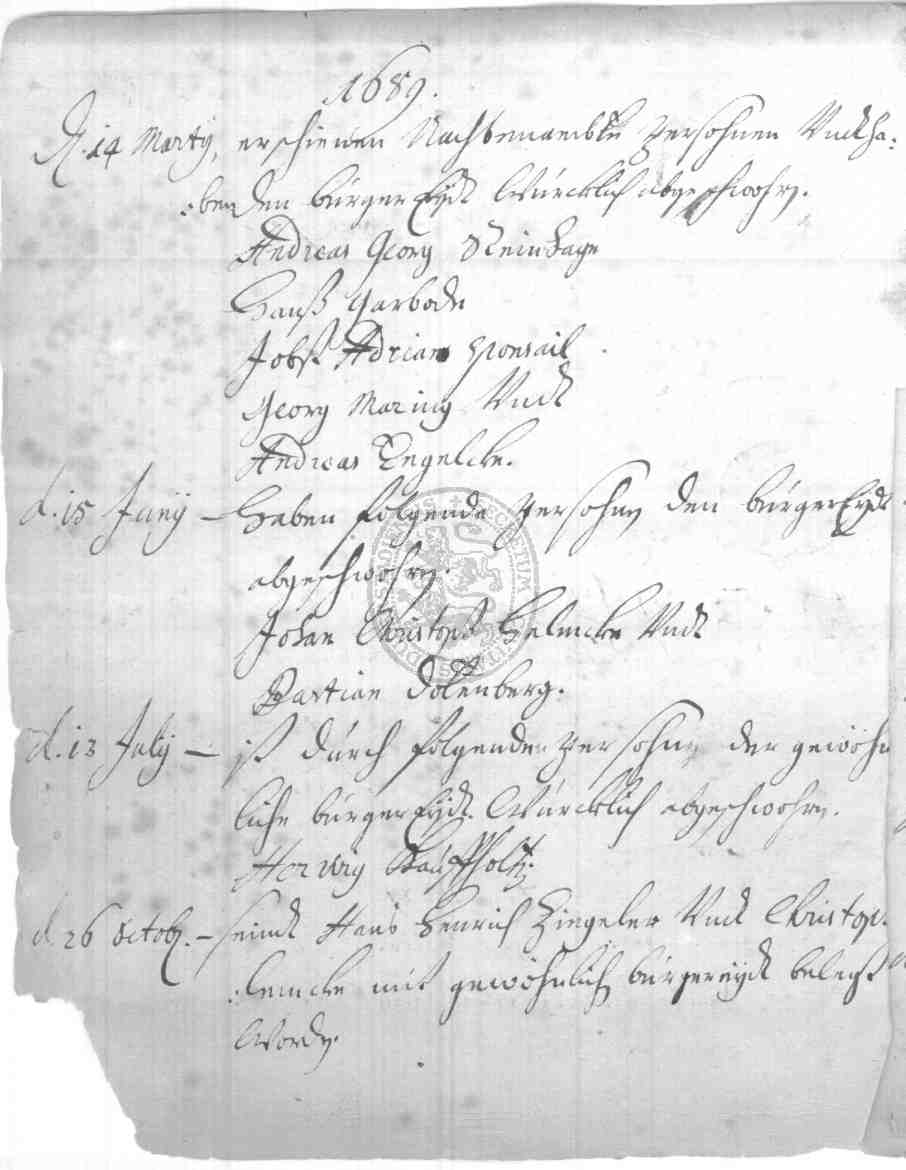 1689.
D. 14 Marty, erschienen Nachbenambte Persohnen Undt ha:
:ben den bürger Eydt Würcklich abgeschwohrn.
Andreas Georg Steinhage
Hanß Garbode
Jobst Adrian
Georg Maring Undt
Andreas Engelcke.
d. 15 Juny – Haben folgende Persohn den bürger Eydt
abgeschwohrn.
Johan Christoph Helmcke Undt
Bastian Dolenberg.
d. 13 July – ist durch folgende Persohn der gewöhn
liche bürger Eydt Würcklich abgeschwohrn.
Herwig
d. 26 Octobr. – seindt Hans Henrich Ziegeler Undt Christop.
mit gewöhnlich bürgereydt belegt
Worden.